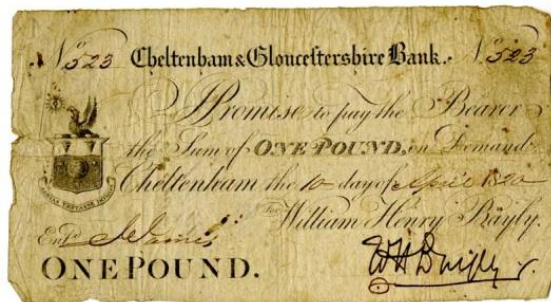 No 523 Cheltenham & Gloucestershire Bank. No 523
I Promise to pay the Bearer
the Sum of ONE POUND, on Demand.
Cheltenham the 10 day of April 1820
For William Henry Bayly.
Entd
ONE POUND.